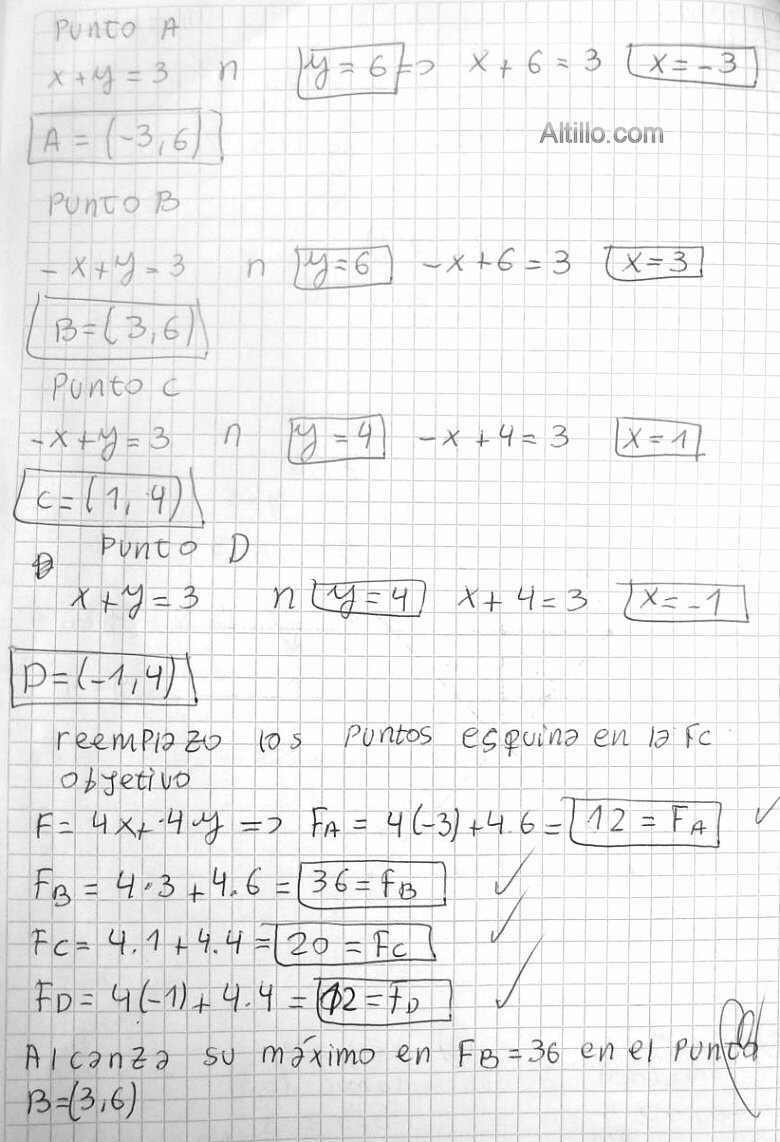 Punto A
x+y=3 ∩ y=6 => x+6=3 x=-3
A=(-3,6)
Altillo.com
Punto B
-x+y=3 ∩ y=6 -x+6=3 x=3
B=(3,6)
Punto C
-x+y=3 ∩ y=4 -x+4=3 x=1
C=(1,4)
Punto D
x+y=3 ∩ y=4 x+4=3 x=-1
D=(-1,4)
reemplazo los puntos esquina en la Fc
objetivo
F=4x+4y => FA=4(-3)+4.6=12=FA ✓
FB=4.3+4.6=36=FB ✓
FC=4.1+4.4=20=FC ✓
FD=4(-1)+4.4=12=FD ✓
Alcanza su máximo en FB=36 en el punto
B=(3,6)